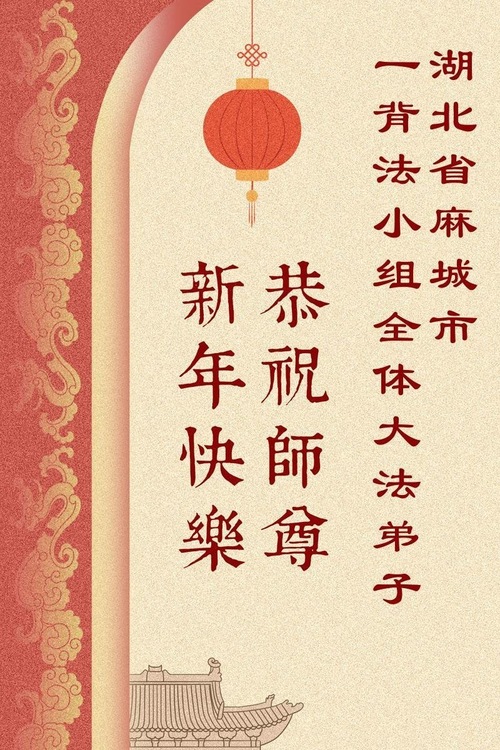 湖北省麻城市
一背法小组全体大法弟子
恭祝師尊
新年快樂